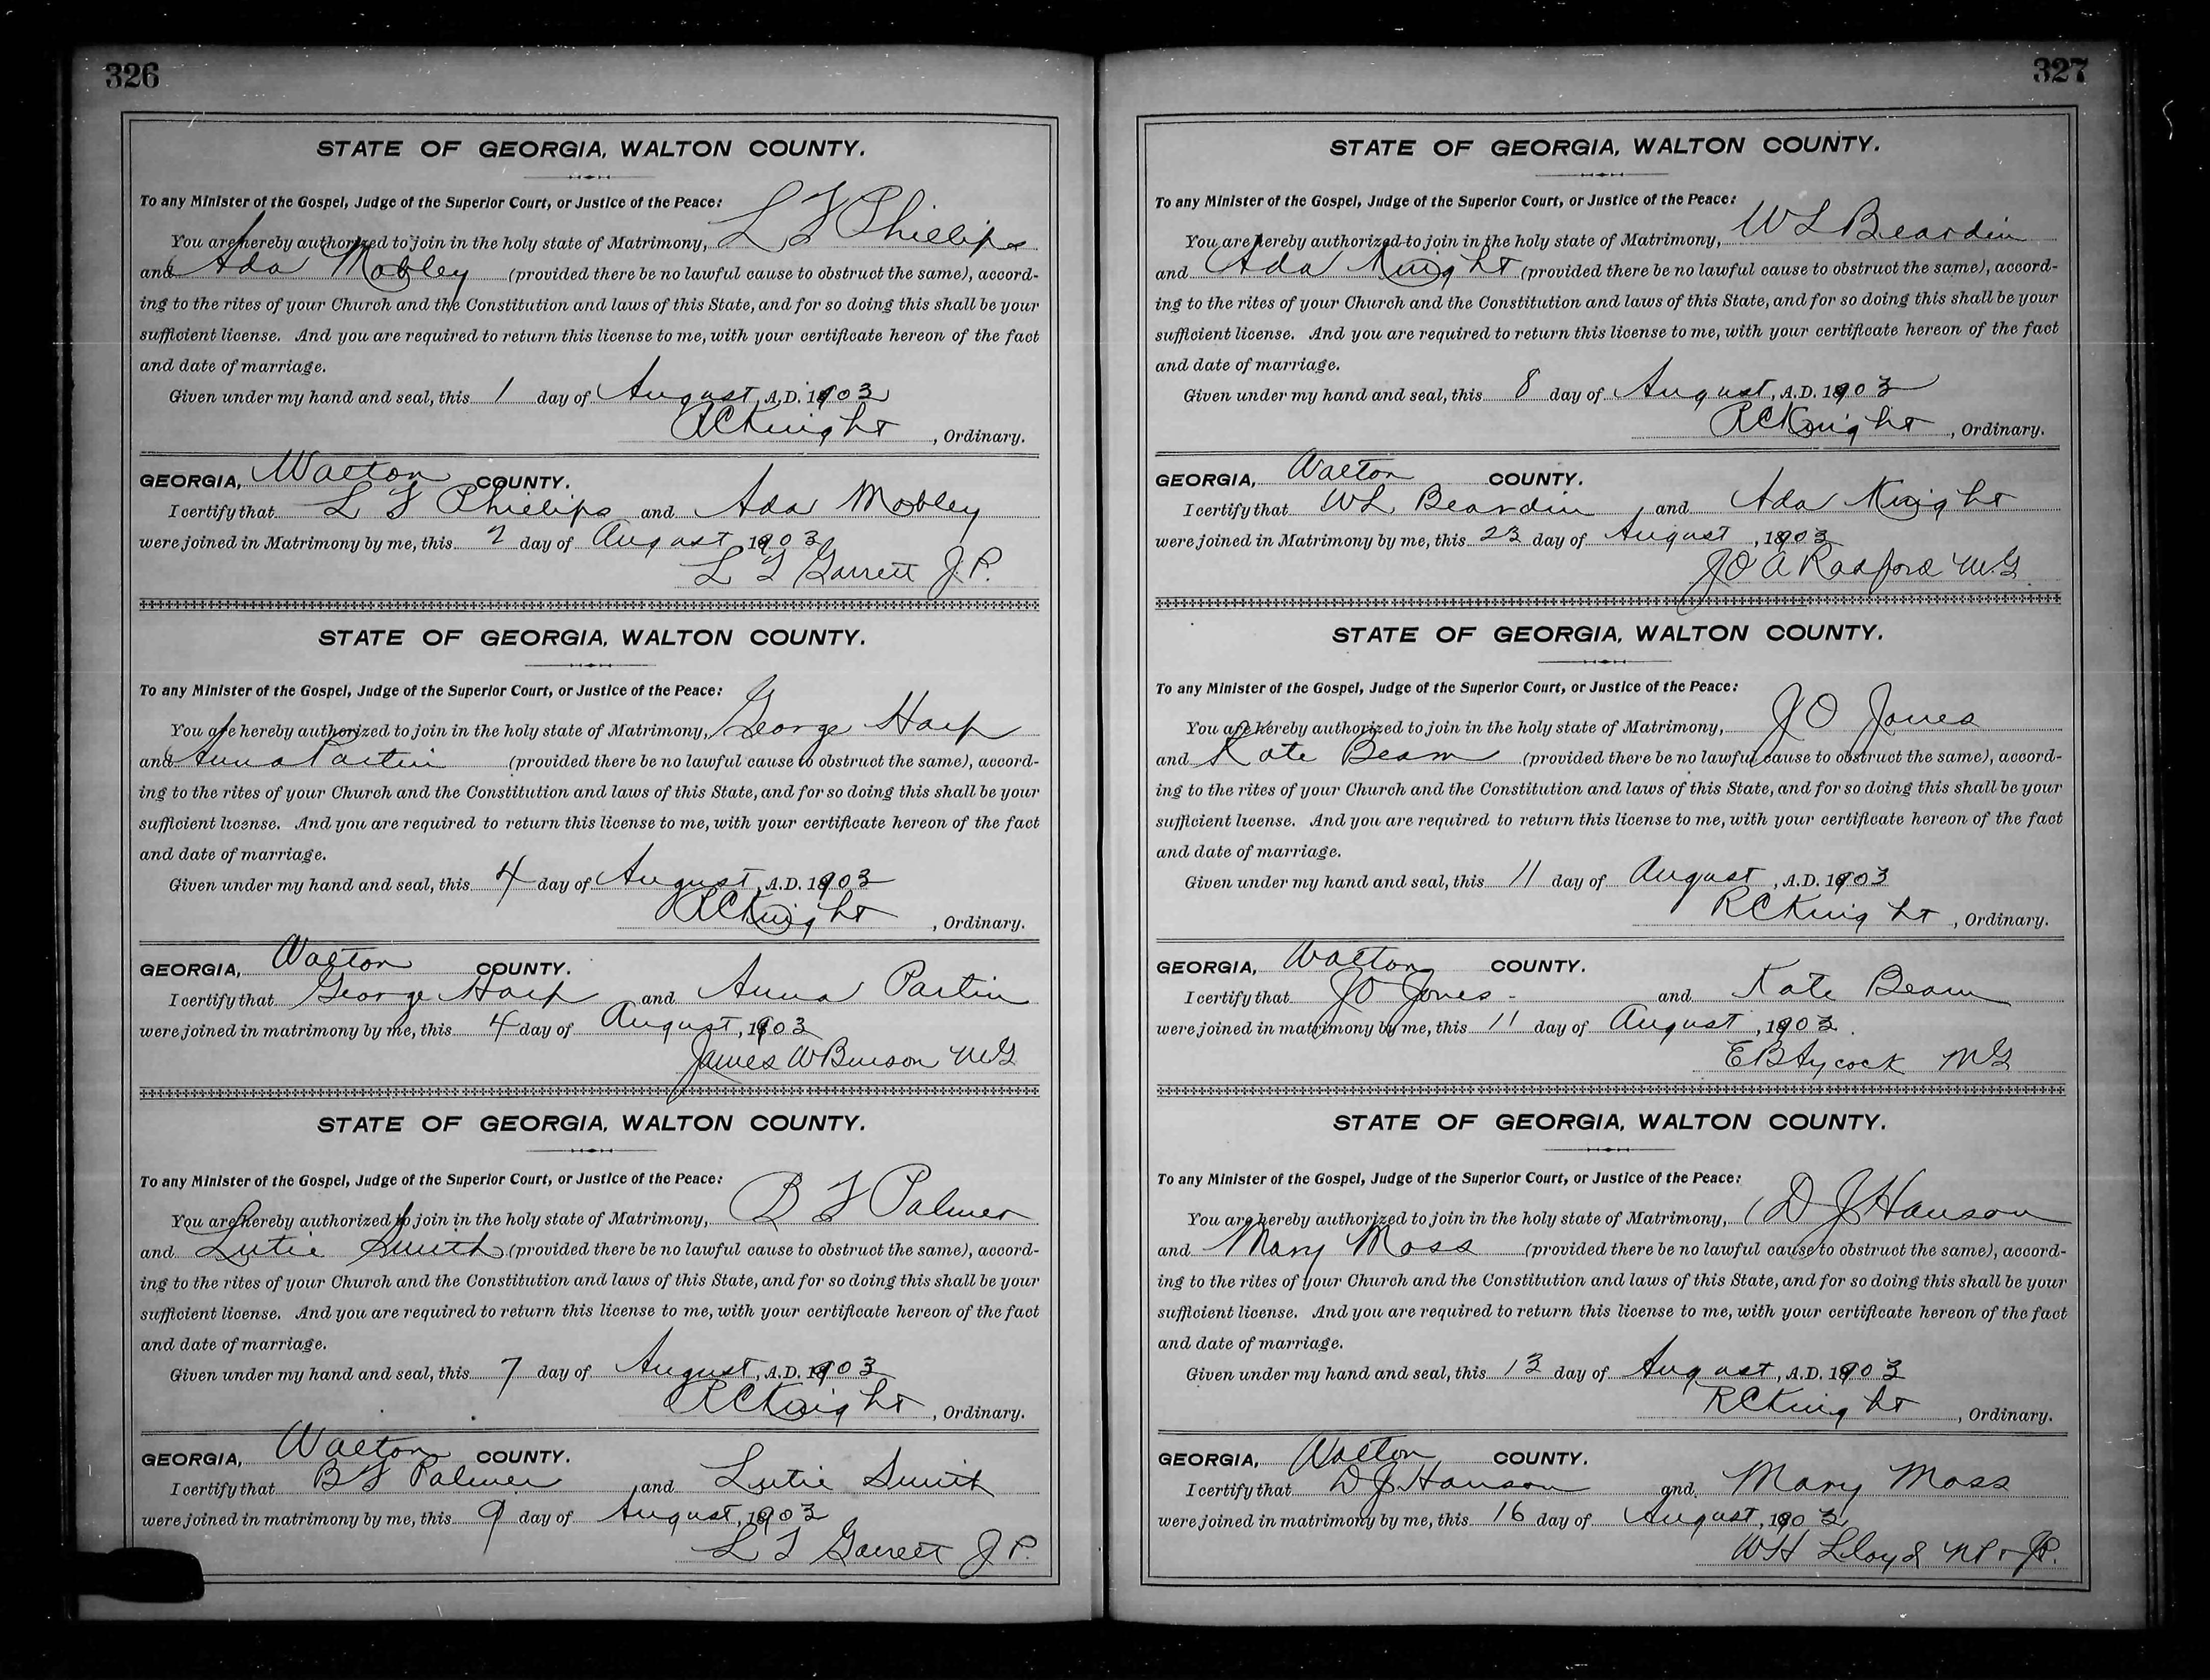 326
STATE OF GEORGIA, WALTON COUNTY.
To any Minister of the Gospel, Judge of the Superior Court, or Justice of the Peace:
You are hereby authorized to join in the holy state of Matrimony, L F Phillips
and Ada Mobley (provided there be no lawful cause to obstruct the same), accord-
ing to the rites of your Church and the Constitution and laws of this State, and for so doing this shall be your
sufficient license. And you are required to return this license to me, with your certificate hereon of the fact
and date of marriage.
Given under my hand and seal, this 1 day of August, A.D. 1903
R C Knight, Ordinary.
GEORGIA, Walton COUNTY.
I certify that L F Phillips and Ada Mobley
were joined in Matrimony by me, this 2 day of August, 1903
L T Garrett J. P.
STATE OF GEORGIA, WALTON COUNTY.
To any Minister of the Gospel, Judge of the Superior Court, or Justice of the Peace:
You are hereby authorized to join in the holy state of Matrimony, George Harp
and Anna Partin (provided there be no lawful cause to obstruct the same), accord-
ing to the rites of your Church and the Constitution and laws of this State, and for so doing this shall be your
sufficient license. And you are required to return this license to me, with your certificate hereon of the fact
and date of marriage.
Given under my hand and seal, this 4 day of August, A.D. 1903
R C Knight, Ordinary.
GEORGIA, Walton COUNTY.
I certify that George Harp and Anna Partin
were joined in matrimony by me, this 4 day of August, 1903
James W Burson MG
STATE OF GEORGIA, WALTON COUNTY.
To any Minister of the Gospel, Judge of the Superior Court, or Justice of the Peace:
You are hereby authorized to join in the holy state of Matrimony, B F Palmer
and Lutie Smith (provided there be no lawful cause to obstruct the same), accord-
ing to the rites of your Church and the Constitution and laws of this State, and for so doing this shall be your
sufficient license. And you are required to return this license to me, with your certificate hereon of the fact
and date of marriage.
Given under my hand and seal, this 7 day of August, A.D. 1903
R C Knight, Ordinary.
GEORGIA, Walton COUNTY.
I certify that B F Palmer and Lutie Smith
were joined in matrimony by me, this 9 day of August, 1903
L T Garrett J P.
327
STATE OF GEORGIA, WALTON COUNTY.
To any Minister of the Gospel, Judge of the Superior Court, or Justice of the Peace:
You are hereby authorized to join in the holy state of Matrimony, W L Beardin
and Ada Knight (provided there be no lawful cause to obstruct the same), accord-
ing to the rites of your Church and the Constitution and laws of this State, and for so doing this shall be your
sufficient license. And you are required to return this license to me, with your certificate hereon of the fact
and date of marriage.
Given under my hand and seal, this 8 day of August, A.D. 1903
R C Knight, Ordinary.
GEORGIA, Walton COUNTY.
I certify that W L Beardin and Ada Knight
were joined in Matrimony by me, this 23 day of August, 1903
J O A Radford MG
STATE OF GEORGIA, WALTON COUNTY.
To any Minister of the Gospel, Judge of the Superior Court, or Justice of the Peace:
You are hereby authorized to join in the holy state of Matrimony, J O Jones
and Kate Beam (provided there be no lawful cause to obstruct the same), accord-
ing to the rites of your Church and the Constitution and laws of this State, and for so doing this shall be your
sufficient license. And you are required to return this license to me, with your certificate hereon of the fact
and date of marriage.
Given under my hand and seal, this 11 day of August, A.D. 1903
R C Knight, Ordinary.
GEORGIA, Walton COUNTY.
I certify that J O Jones and Kate Beam
were joined in matrimony by me, this 11 day of August, 1903.
E B Aycock MG
STATE OF GEORGIA, WALTON COUNTY.
To any Minister of the Gospel, Judge of the Superior Court, or Justice of the Peace:
You are hereby authorized to join in the holy state of Matrimony, D J Hanson
and Mary Moss (provided there be no lawful cause to obstruct the same), accord-
ing to the rites of your Church and the Constitution and laws of this State, and for so doing this shall be your
sufficient license. And you are required to return this license to me, with your certificate hereon of the fact
and date of marriage.
Given under my hand and seal, this 13 day of August, A.D. 1903
R C Knight, Ordinary.
GEORGIA, Walton COUNTY.
I certify that D J Hanson and Mary Moss
were joined in matrimony by me, this 16 day of August, 1903
W H Lloyd NP & JP.